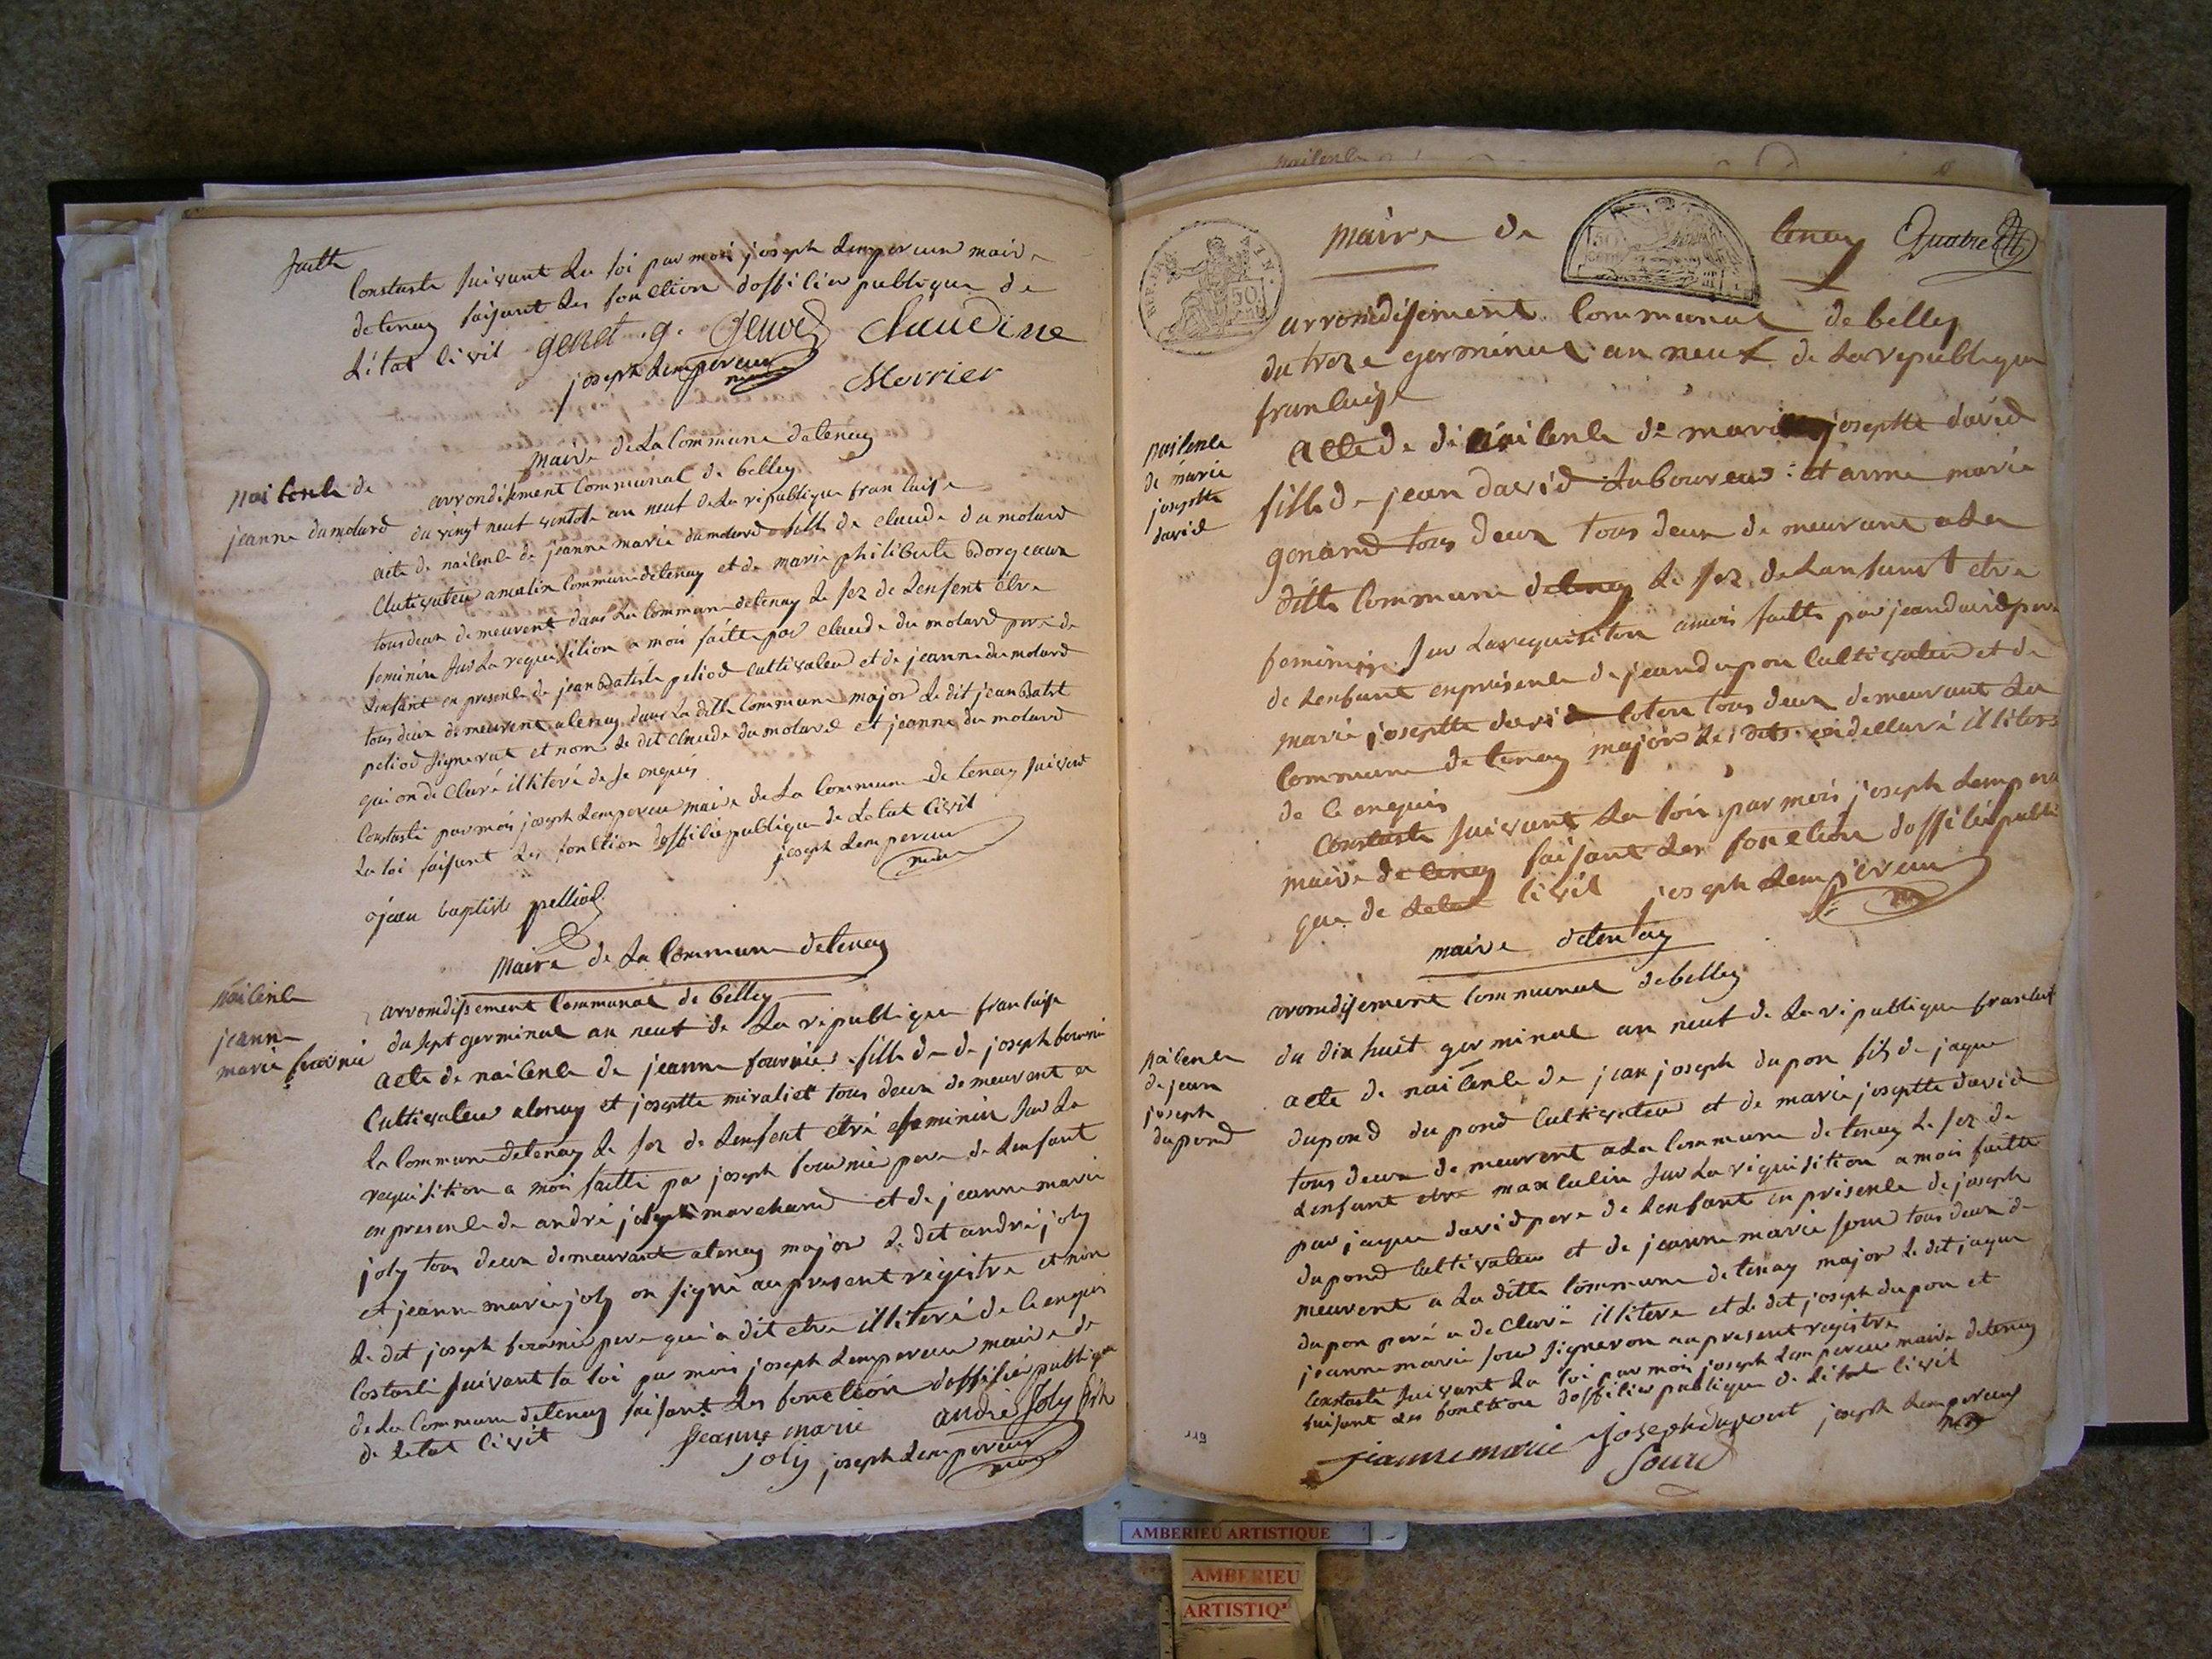 suitte
Constaste suivant la loi par moi joseph Lempereur maire
de tenay faisant les fonction dofficier publique de
Létat civil genet . g . Genod Claudine
joseph Lempereur
maire
Merrier
Maire de La Commune de tenay
naicence de
jeanne dumolard
arrondisement Communal de belley
du vingt neuf ventose an neuf de La république francaise
acte de naicence de jeanne marie dumolard fille de claude du molard
Cultivateur a commune de tenay et de marie philiberte
tous deux de meurent dans La Commune de tenay Le sex de Lenfent être
feminin sur La requisition a moi faitte par claude du molard pere de
Lenfant en presence de jean batiste peliod cultivateur et de jeanne du molard
tous deux de meurent a tenay dans La ditte Commune major Le dit jean batist
peliod signerat et nom Le dit claude du molard et jeanne du molard
qui on déclaré illiteré de se enquis
Constasté par moi joseph Lempereur maire de La Commune de tenay suivent
La loi faisant Les fonction dofficie publique de Letat civil
joseph Lempereur
maire
jean baptiste pelliod
Maire de La Commune de tenay
naicence
jeanne
marie fournié
arrondissement Communal de belley
du sept germinal an neuf de La république francaise
acte de naicence de jeanne fournier fille de de joseph fournie
Cultivateur a tenay et josephte miraliet tous deux de meurent a
La Commune de tenay Le sex de Lenfent etré feminin sur La
requisition a moi faitte par joseph fournie pere de Lenfant
en presence de andré joly marchand et de jeanne marie
joly tous deux demeurant a tenay major Le dit andré joly
et jeanne marie joly on signé au present registre et non
Le dit joseph fournie pere qui a dit etre illiteré de ce enquis
Costasté suivant la loi par moi joseph Lempereur maire de
de La Commune de tenay faisant Les fonction dofficié publique
de Letat civil
jeanne marie
joly
andré joly
joseph Lempereur
maire
50
maire de tenay
arrondisement Communal de belley
du treze germinal an neuf de La republique
francaise
naicence
de marie
josephte
david
acte de naicence de marie josephte david
fille de jean david Laboureur et anne marie
genand tous deux tous deux de meurant a La
ditte Commune de tenay Le sex de Lanfant etre
feminin sur La requisition a moi faitte par jean david pere
de Lenfant en présence de jean dupon Cultivateur et de
marie josephte david tous deux demeurant La
Commune de tenay major déclaré illiteré
de ce enquis
Constaste suivant La loi par moi joseph Lempereu
maire de tenay faisant Les fonction dofficié publi
que de Letat civil joseph Lempereur
maire
maire de tenay
arrondisement Communal de belley
du dix huit germinal an neuf de La république francaise
naicence
de jean
joseph
dupond
acte de naicence de jean joseph dupon fils de jaque
dupond dupond Cultivateur et de marie josephte david
tous deux de meurent a La Commune de tenay Le sex de
Lenfant etre maxculin sur La requisition a moi faitte
par jaque david pere de Lenfant en présence de joseph
dupond Cultivateur et de jeanne marie sour tous deux de
meurent a La ditte Commune de tenay major Le dit jaque
dupon pere a de claré illitere et Le dit joseph dupon et
jeanne marie sour signeron au present registre
Constasté suivant La loi par moi joseph Lempereur maire de tenay
faisant Les fonction dofficier publique de Létat civil
jeanne marie
Sourd
joseph dupont
joseph Lempereur
119
AMBERIEU ARTISTIQUE
AMBERIEU
ARTISTIQ